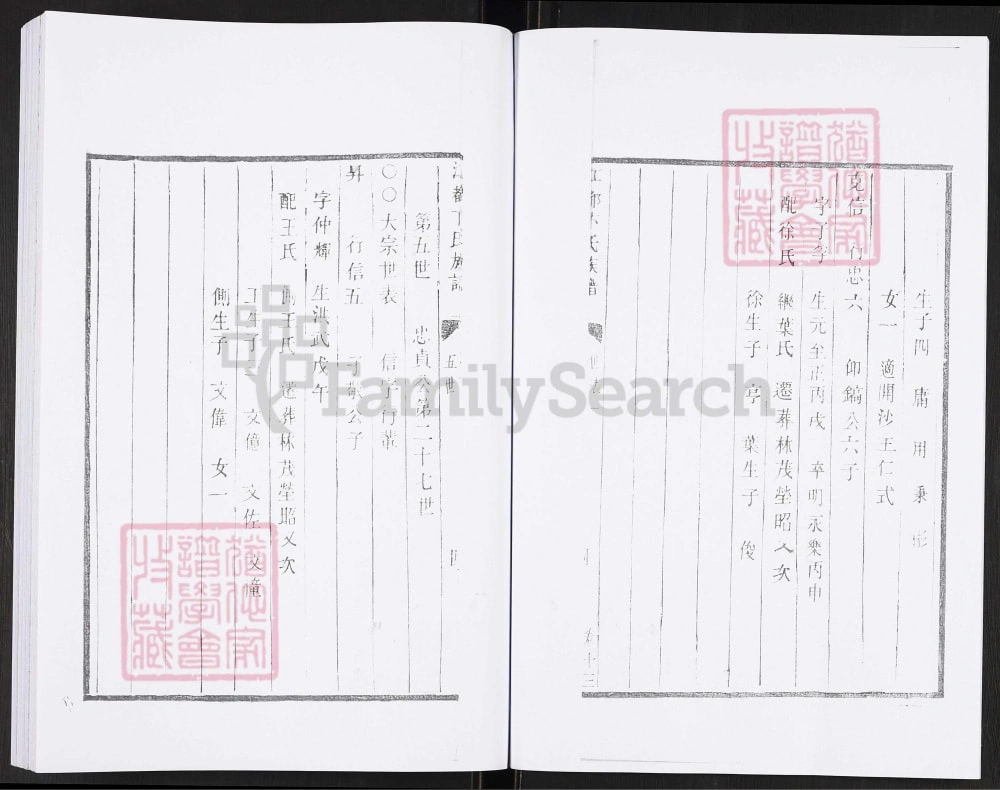 生子四 庸 用 秉 彤
女一 適開沙王仁式
克信 行忠六 仰鎬公六子
字子孚 生元至正丙戌 卒明永樂丙申
配徐氏 繼葉氏 遷葬林茂塋昭又次
徐生子 亨 葉生子 俊
氏族譜
卷十三
第五世 忠貞公第二十七世
〇〇大宗世表 信字行輩
昇 行信五 公子
字仲輝 生洪武戊午
配王氏 王氏 遷葬林茂塋昭又次
王生子 文億 文佐 文憧
側生子 文偉 女一
五世 四
猶他家譜學會收藏
猶他家譜學會收藏
FamilySearch